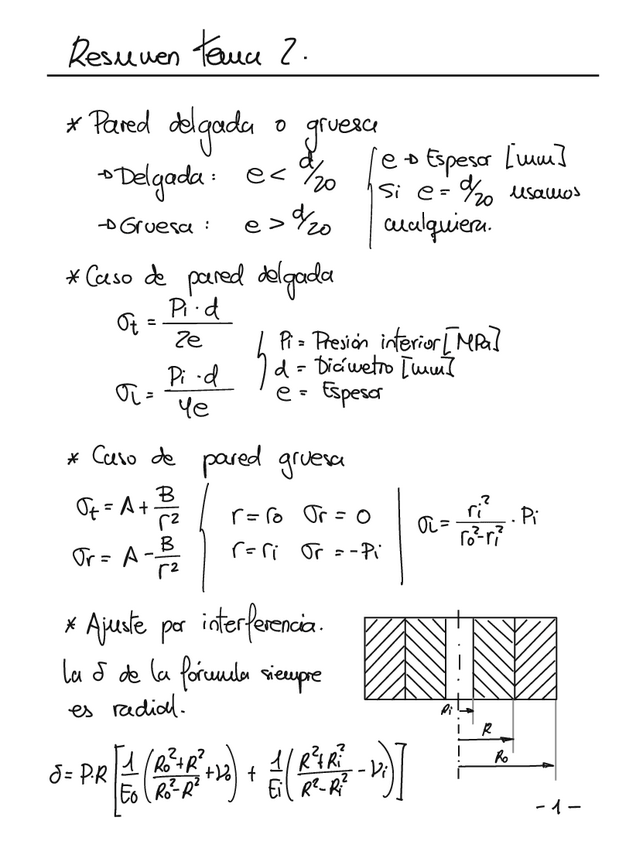 Resumen tema 2.
* Pared delgada o gruesa
→ Delgada: e < d/20
→ Gruesa: e > d/20
e → Espesor [mm]
Si e = d/20 usamos
cualquiera.
* Caso de pared delgada
σt = Pi · d / 2e
σl = Pi · d / 4e
Pi = Presión interior [MPa]
d = Diámetro [mm]
e = Espesor
* Caso de pared gruesa
σt = A + B/r²
σr = A - B/r²
r = ro σr = 0
r = ri σr = -Pi
σl = ri² / (ro² - ri²) · Pi
* Ajuste por interferencia.
la δ de la fórmula siempre
es radial.
δ = P·R [1/Eo ((Ro² + R²)/(Ro² - R²) + νo) + 1/Ei ((R² + Ri²)/(R² - Ri²) - νi)]
Ri
R
Ro
- 1 -